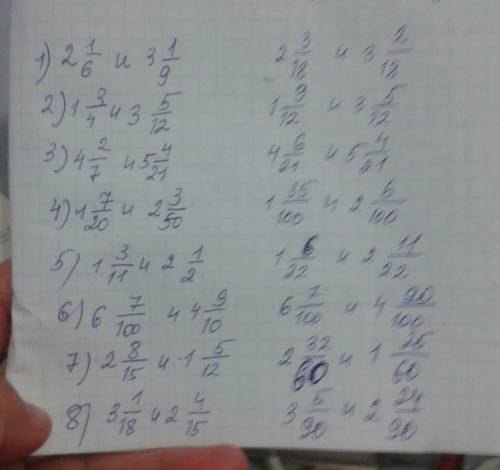 1) 2 1/6 и 3 1/9   2 3/18 и 3 2/18
2) 1 3/4 и 3 5/12   1 9/12 и 3 5/12
3) 4 2/7 и 5 4/21   4 6/21 и 5 4/21
4) 1 7/20 и 2 3/50   1 35/100 и 2 6/100
5) 1 3/11 и 2 1/2   1 6/22 и 2 11/22
6) 6 7/100 и 4 9/10   6 7/100 и 4 90/100
7) 2 8/15 и 1 5/12   2 32/60 и 1 25/60
8) 3 1/18 и 2 4/15   3 5/90 и 2 24/90